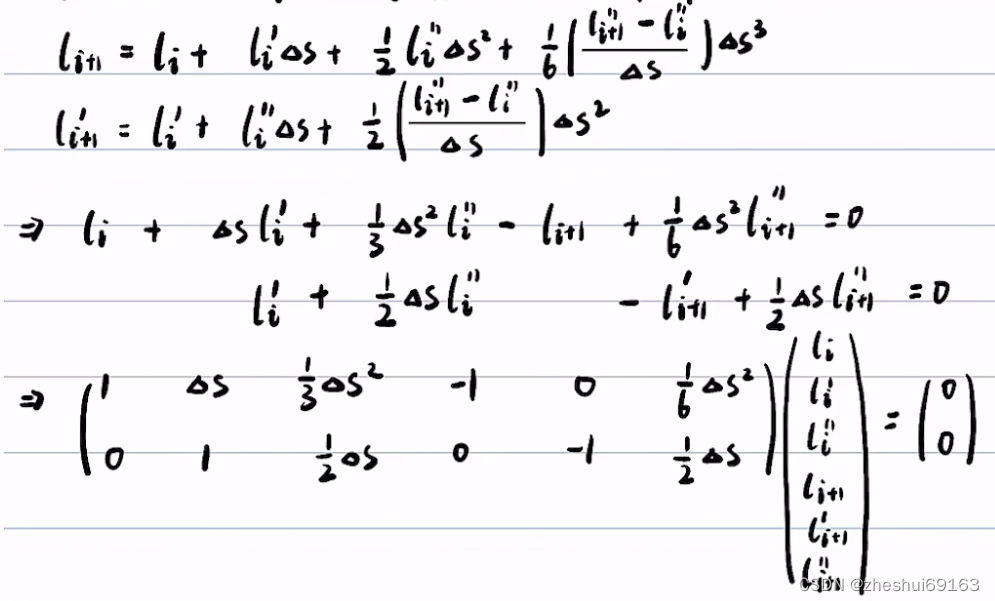 l_{i+1} = l_i + l_i' Δs + \frac{1}{2} l_i'' Δs² + \frac{1}{6} ( \frac{l_{i+1}'' - l_i''}{Δs} ) Δs³
l_{i+1}' = l_i' + l_i'' Δs + \frac{1}{2} ( \frac{l_{i+1}'' - l_i''}{Δs} ) Δs²
⇒ l_i + Δs l_i' + \frac{1}{3} Δs² l_i'' - l_{i+1} + \frac{1}{6} Δs² l_{i+1}'' = 0
l_i' + \frac{1}{2} Δs l_i'' - l_{i+1}' + \frac{1}{2} Δs l_{i+1}'' = 0
⇒ \begin{pmatrix} 1 & Δs & \frac{1}{3} Δs² & -1 & 0 & \frac{1}{6} Δs² \\ 0 & 1 & \frac{1}{2} Δs & 0 & -1 & \frac{1}{2} Δs \end{pmatrix} \begin{pmatrix} l_i \\ l_i' \\ l_i'' \\ l_{i+1} \\ l_{i+1}' \\ l_{i+1}'' \end{pmatrix} = \begin{pmatrix} 0 \\ 0 \end{pmatrix}
CSDN @zheshui69163